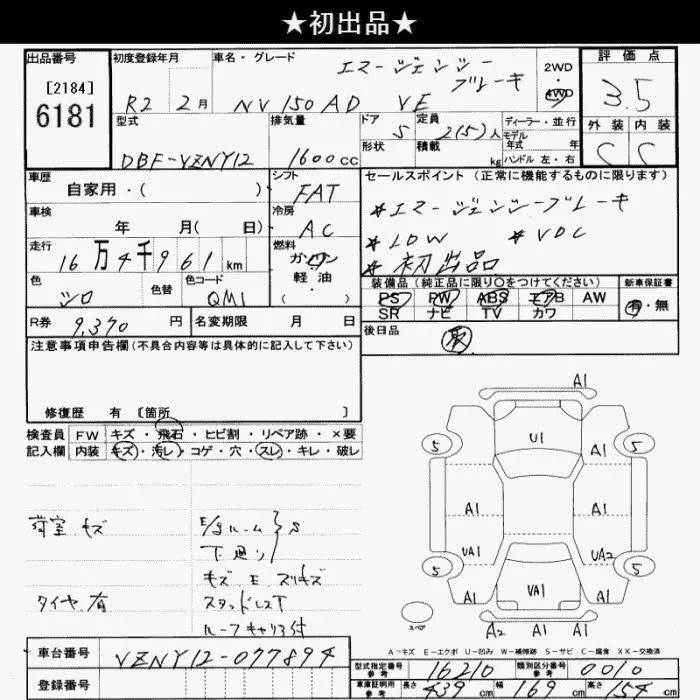 ★初出品★
出品番号
[2184]
6181
初度登録年月
R2 2月
車名・グレード
エマージェンシー
ブレーキ
NV150AD VE
2WD
・
4WD
評価点
3.5
外装 内装
C C
型式
DBF-VZNY12
排気量
1600cc
ドア
5
形状
定員
2(5)人
積載
kg
ディーラー・並行
モデル
年式 年
ハンドル 左・右
車歴
自家用・( )
シフト
FAT
車検
年 月( 日)
冷房
AC
走行
16万4千961km
燃料
ガソリン
軽油・
( )
色
シロ
色替
色コード
QM1
セールスポイント (正常に機能するものに限ります)
*エマージェンシーブレーキ
*LDW *VDC
*初出品
装備品 (純正品に限り○をつけてください)
PS PW ABS エアB AW
SR ナビ TV カワ
新車保証書
有・無
R券 9,370円
名変期限 月 日
後日品
取
注意事項申告欄(不具合内容等は具体的に記入して下さい)
修復歴 有 [箇所 ]
検査員
記入欄
FW キズ・飛石・ヒビ割・リペア跡・×要
内装 キズ・汚レ・コゲ・穴・スレ・キレ・破レ
荷室.キズ
タイヤ.有
E/gルーム
下廻り
S
キズ.E.スリキズ
スタッドレスT
ルーフキャリア付
A1
U1
5 A1 5
A1 A1
UA1 UA2
5 5
A1 UA1 A1
A2 A1 A1
スペア
A=キズ E=エクボ U=凹み W=補修跡 S=サビ C=腐食 XX=交換済
車台番号
VZNY12-077894
登録番号
型式指定番号
参考
16210
類別区分番号
参考
0010
車庫証明用
参考
長さ 439cm 幅 169cm 高さ 154cm